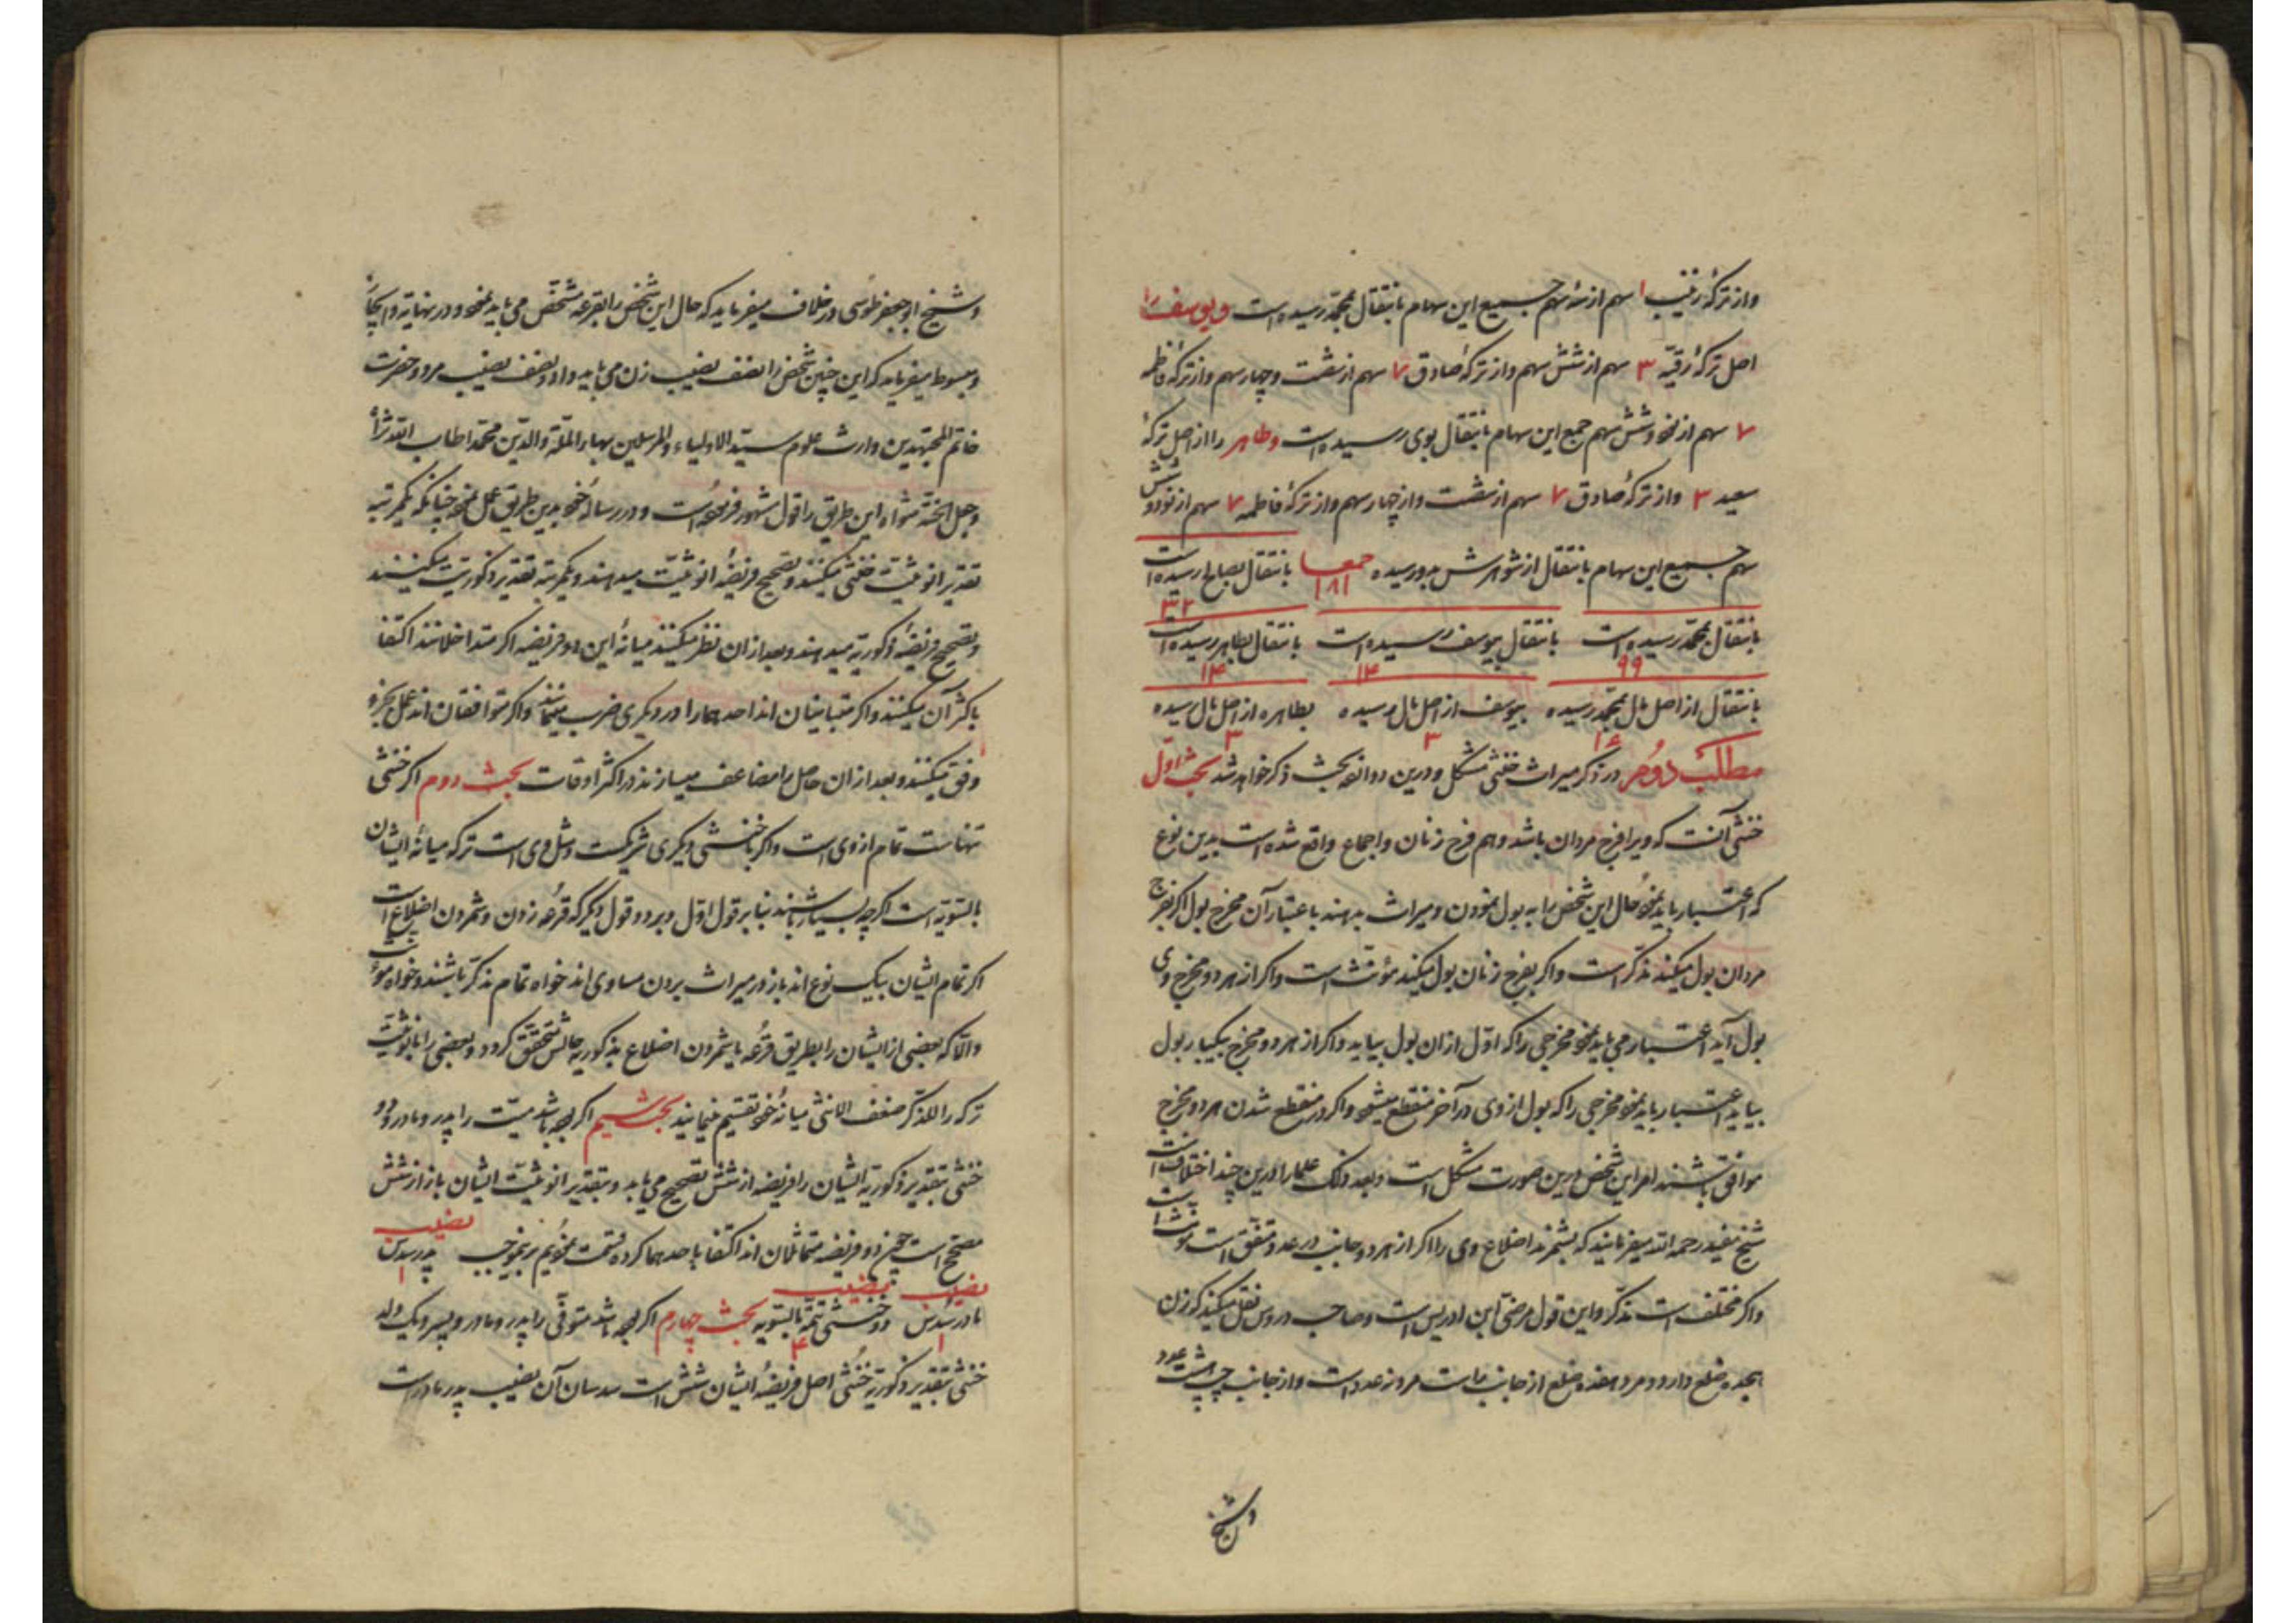 واز ترکهٔ زینب ۱ سهم از سه سهم جمیع این سهام بانتقال بمحمد رسیده است و یوسف را
اصل ترکهٔ رقیه ۳ سهم از شش سهم واز ترکهٔ صادق ۷ سهم از شصت وچهار سهم واز ترکهٔ فاطمه
۷ سهم از نود وشش سهم جمیع این سهام بانتقال بوی رسیده است وطاهر را از اصل ترکهٔ
سعید ۳ واز ترکهٔ صادق ۷ سهم از شصت واز چهار سهم واز ترکهٔ فاطمه ۷ سهم از نود و شش
سهم جمیع این سهام بانتقال از شوهرش بدو رسیده جمعا ۱۸۱ بانتقال بصالح رسیده است ۳۲
بانتقال بمحمد رسیده است ۹۹ بانتقال بیوسف رسیده است ۱۴ بانتقال بطاهر رسیده است ۱۴
بانتقال از اصل مال بمحمد رسیده بیوسف از اصل مال رسیده ۳ بطاهره از اصل مال رسیده ۳
مطلب دوم در ذکر میراث خنثی مشکل ودرین دوانزه بحث ذکر خواهد شد بحث اول
خنثی آنست که ویرا فرج مردان باشد وهم فرج زنان واجماع واقع شده است بدین نوع
که اعتبار باید نمود حال این شخص را به بول نمودن ومیراث بدهند باعتبار آن مخرج بول اگر بفرج
مردان بول میکند مذکر است واگر بفرج زنان بول میکند مؤنث است واگر از هر دو مخرج وی
بول آید اعتبار می باید نمود مخرجی را که اول ازان بول بیاید واگر از هر دو مخرج بیکبار بول
بیاید اعتبار باید نمود مخرجی را که بول از وی در آخر منقطع میشود واگر در منقطع شدن هر دو مخرج
موافق باشند امر این شخص درین صورت مشکل است وبعد ذلک علما را درین چند اختلاف است
شیخ مفید رحمه الله میفرمایند که بشمرند اضلاع وی را اگر از هر دو جانب در عدد متفق است مؤنث است
واگر مختلف است مذکر واین قول مرضی ابن ادریس است وصاحب دروس نقل میکند که زن
هجده ضلع دارد ومرد هفده ضلع از جانب راست مرد نه عدد است واز جانب چپ هشت عدد
وشیخ
وشیخ ابو جعفر طوسی در خلاف میفرماید که حال این شخص را بقرعه مشخص می باید نمود ودر نهایه وایجاز
ومبسوط میفرماید که این چنین شخص را نصف نصیب زن می باید داد ونصف نصیب مرد وحضرت
خاتم المجتهدین وارث علوم سید الاولیاء والمرسلین بهاء الملة والدین محمد اطاب الله ثراه
وجعل الجنة مثواه این طریق را قول مشهور فرموده است ودر رسالهٔ خود بدین طریق عمل نموده چنانکه یکمرتبه
تقدیر انوثیت خنثی میکنند وتصحیح فریضهٔ انوثیت میدهند ویکمرتبه تقدیر ذکوریت میکنند
وتصحیح فریضهٔ ذکوریه میدهند وبعد ازان نظر میکنند میانهٔ این دو فریضه اگر متداخلانند اکتفا
باکثر آن میکنند واگر متباینان اند احدهما را در دیگری ضرب مینمایند واگر متوافقان اند عمل بجزو
وفق میکنند وبعد ازان حاصل را مضاعف میسازند در اکثر اوقات بحث دوم اگر خنثی
تنهاست تمام از وی است واگر با خنثی دیگری شریکست ومثل وی است ترکه میانهٔ ایشان
بالسویه است اگرچه بسیار باشند بنا بر قول اول وبر دو قول دیگر که قرعه زدن وشمردن اضلاع است
اگر تمام ایشان بیک نوع اند باز در میراث بردن مساوی اند خواه تمام مذکر باشند وخواه مؤنث
والا که بعضی از ایشان را بطریق قرعه یا شمردن اضلاع ذکوریه حالش متحقق گردد وبعضی را انوثیت
ترکه را للذکر ضعف الانثی میانهٔ خود تقسیم مینمایند بحث سیم اگر بوده باشد میت را پدر ومادر ودو
خنثی بتقدیر ذکوریه ایشان را فریضه از شش تصحیح می یابد وبتقدیر انوثیت ایشان باز از شش
مصحح است چون دو فریضه متماثلان اند اکتفا باحدهما کرده قسمت نمودیم برینموجب نصیب پدر سدس ۱
نصیب مادر سدس ۱ نصیب دو خنثی تتمه بالسویه ۴ بحث چهارم اگر بوده باشد متوفی را پدر ومادر وپسر ویک ولد
خنثی بتقدیر ذکوریه خنثی اصل فریضهٔ ایشان شش است سدسان آن نصیب پدر مادر است